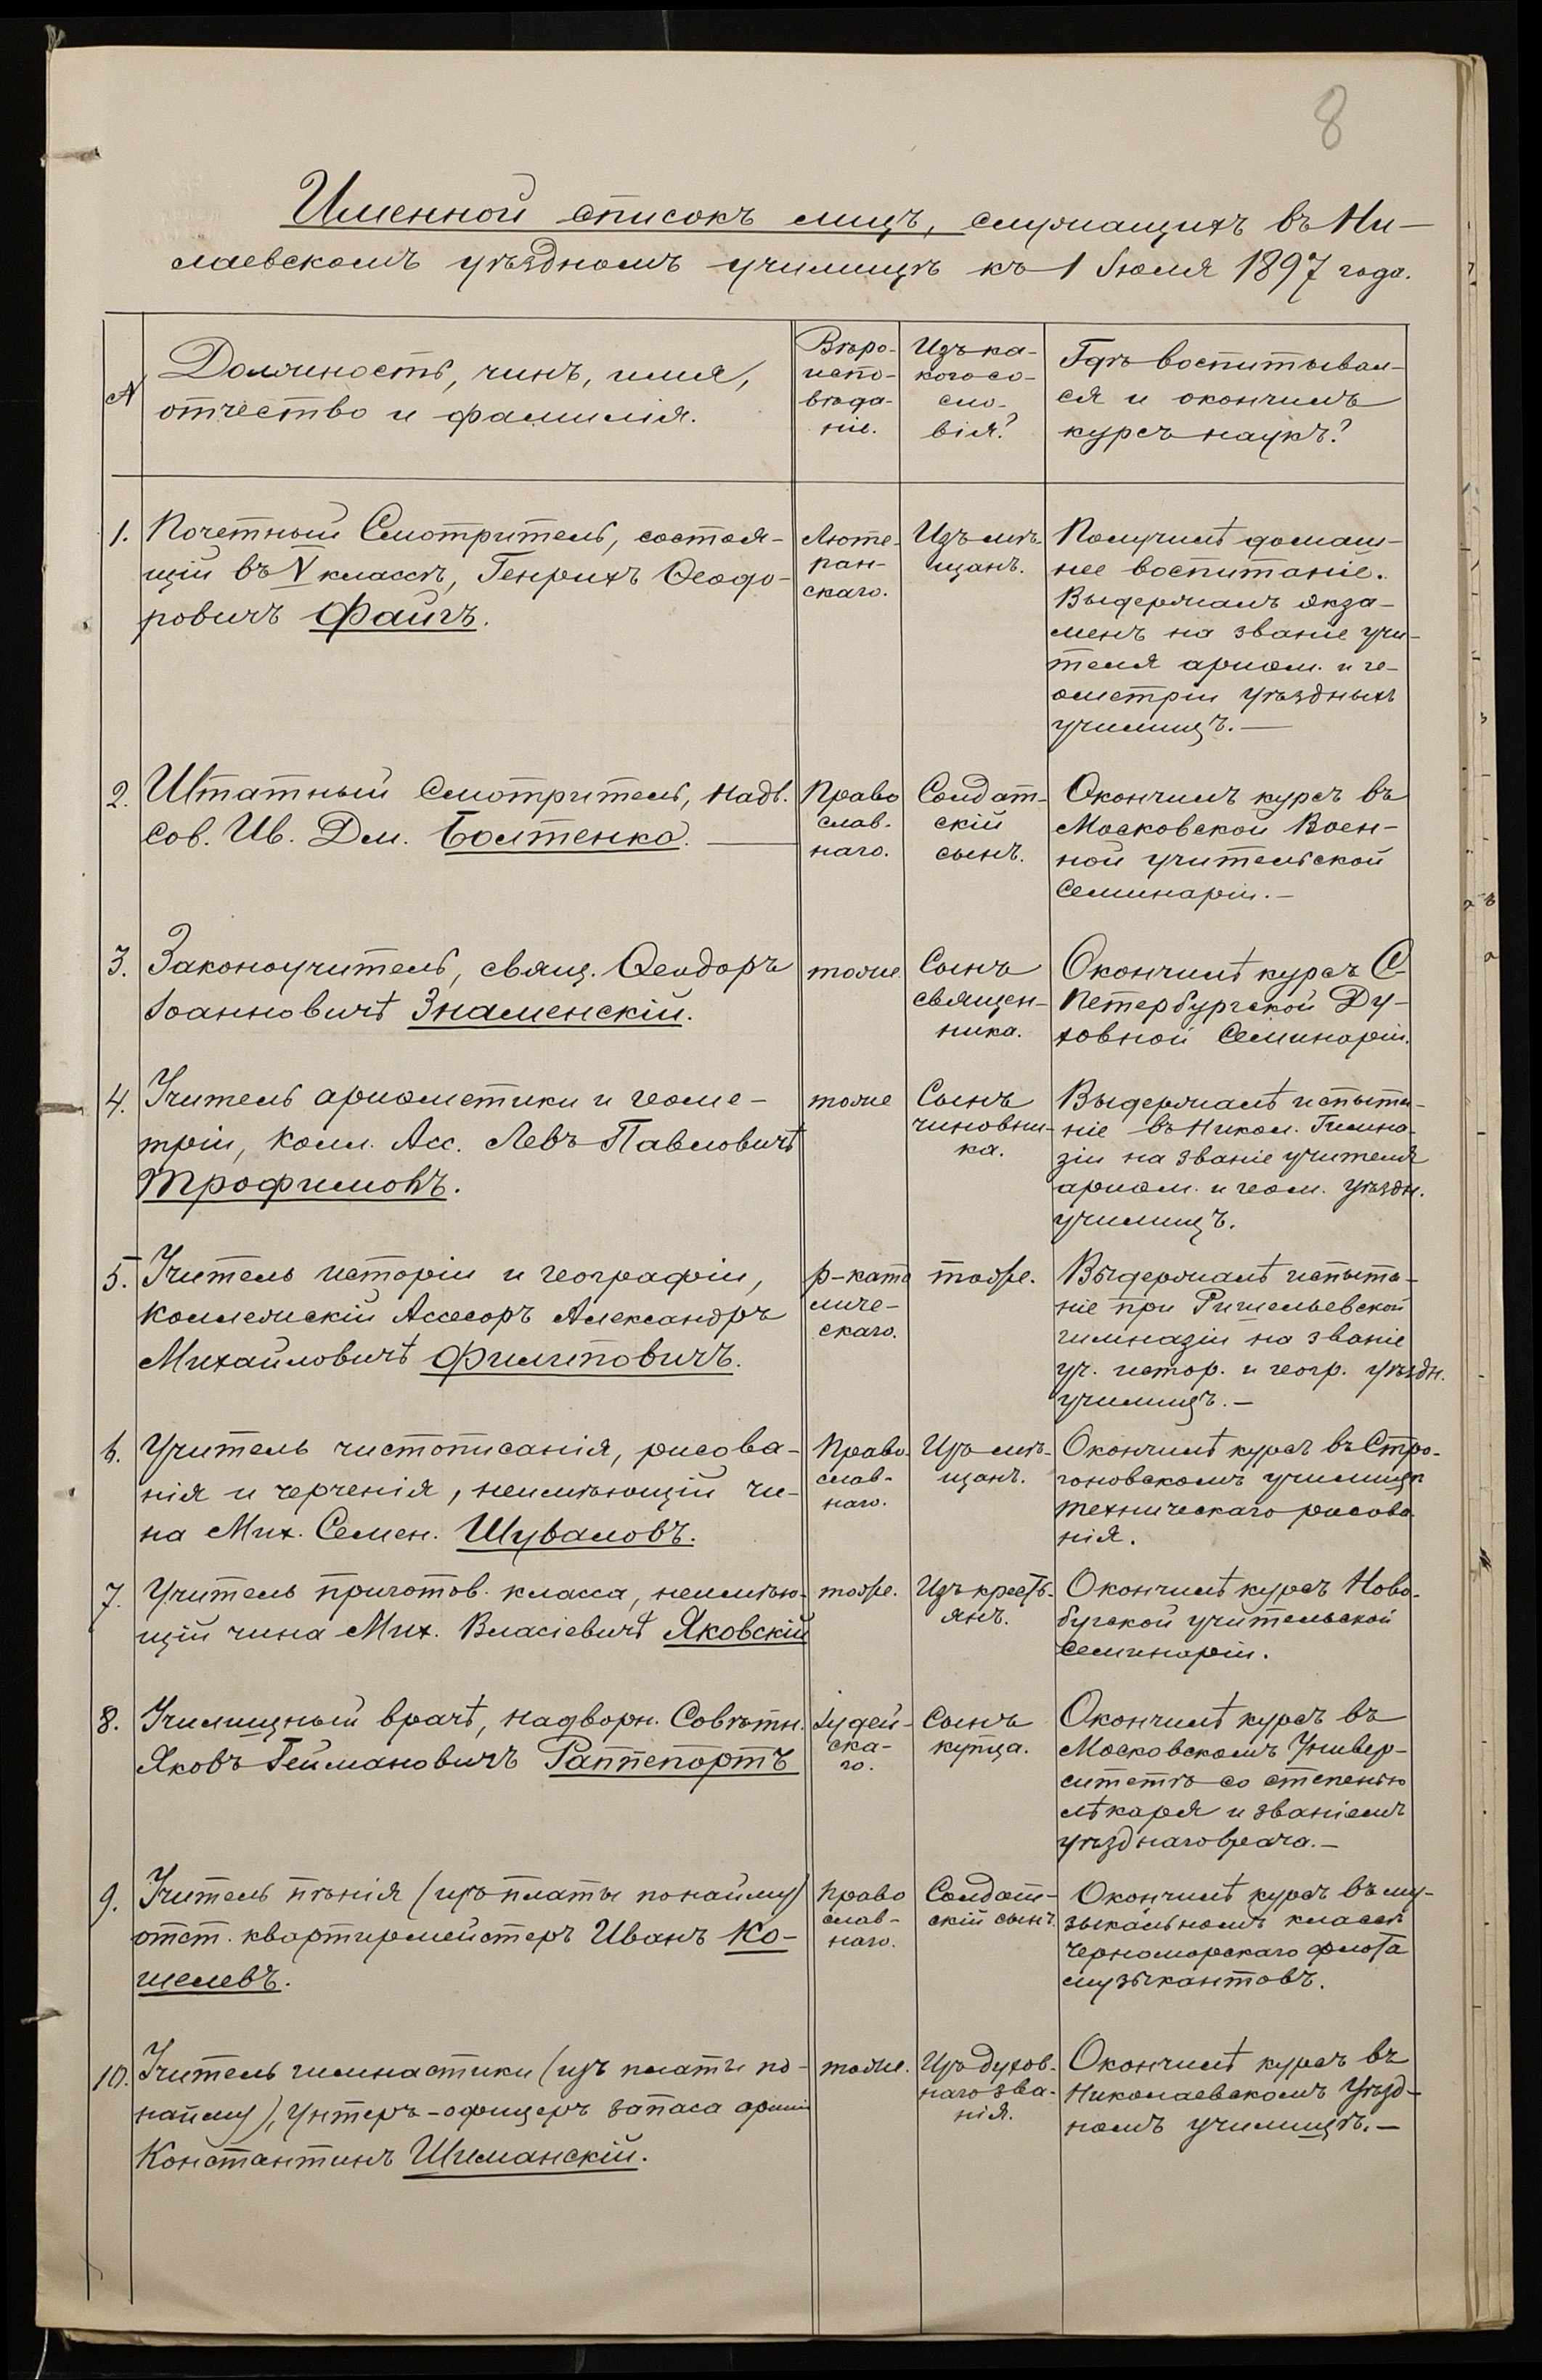 8
Именной списокъ лицъ, служащихъ въ Ни-
лаевскомъ уѣздномъ училищѣ къ 1 Іюля 1897 года.
№
Должность, чинъ, имя,
отчество и фамилія.
Вѣро-
испо-
вѣда-
ніе.
Изъ ка-
кого со-
сло-
вія?
Гдѣ воспитывал-
ся и окончилъ
курсъ наукъ?
1.
Почетный Смотритель, состоя-
щій въ V классѣ, Генрихъ Ѳеодо-
ровичъ Файгъ.
Люте-
ран-
скаго.
Изъ мѣ-
щанъ.
Получилъ домаш-
нее воспитаніе.
Выдержалъ экза-
менъ на званіе учи-
теля ариѳм. и ге-
ометріи уѣздныхъ
училищъ.—
2.
Штатный Смотритель, Надв.
Сов. Ив. Дм. Болтенко. —
Право
слав-
наго.
Солдат-
скій
сынъ.
Окончилъ курсъ въ
Московской Воен-
ной учительской
Семинаріи.—
3.
Законоучитель, свящ. Ѳеодоръ
Іоанновичъ Знаменскій.
тоже
Сынъ
священ-
ника.
Окончилъ курсъ С-
Петербургской Ду-
ховной Семинаріи.
4.
Учитель ариѳметики и геоме-
тріи, Колл. Асс. Левъ Павловичъ
Трофимовъ.
тоже
Сынъ
чиновни-
ка.
Выдержалъ испыта-
ніе въ Никол. Гимна-
зіи на званіе учителя
ариѳм. и геом. уѣздн.
училищъ.
5.
Учитель исторіи и географіи,
Коллежскій Ассесоръ Александръ
Михайловичъ Филиповичъ.
р-като
личе-
скаго.
тоже.
Выдержалъ испыта-
ніе при Ришельевской
гимназіи на званіе
уч. истор. и геогр. уѣздн.
училищъ.—
6.
Учитель чистописанія, рисова-
нія и черченія, неимѣющій чи-
на Мих. Семен. Шуваловъ.
Право
слав-
наго.
Изъ мѣ-
щанъ.
Окончилъ курсъ въ Стро-
гоновскомъ училищѣ
техническаго рисова
нія.
7.
Учитель приготов. класса, неимѣю-
щій чина Мих. Власіевичъ Яковскій
тоже.
Изъ кресть-
янъ.
Окончилъ курсъ Ново-
бугской учительской
Семинаріи.
8.
Училищный врачъ, надворн. Совѣтн.
Яковъ Геймановичъ Раппепортъ
Іудей-
ска-
го.
Сынъ
купца.
Окончилъ курсъ въ
Московскомъ Универ-
ситетѣ со степенью
лѣкаря и званіемъ
уѣзднаго врача.—
9.
Учитель пѣнія (изъ платы по найму)
отст. квартирмейстеръ Иванъ Ко-
шелевъ.
Право
слав-
наго.
Солдат-
скій сынъ.
Окончилъ курсъ въ му-
зыкальномъ классѣ
Черноморскаго флота
музыкантовъ.
10.
Учитель гимнастики (изъ платы по-
найму), Унтеръ-офицеръ запаса арміи
Константинъ Шиманскій.
тоже.
Изъ духов-
наго зва-
нія.
Окончилъ курсъ въ
Николаевскомъ уѣзд-
номъ училищѣ.—